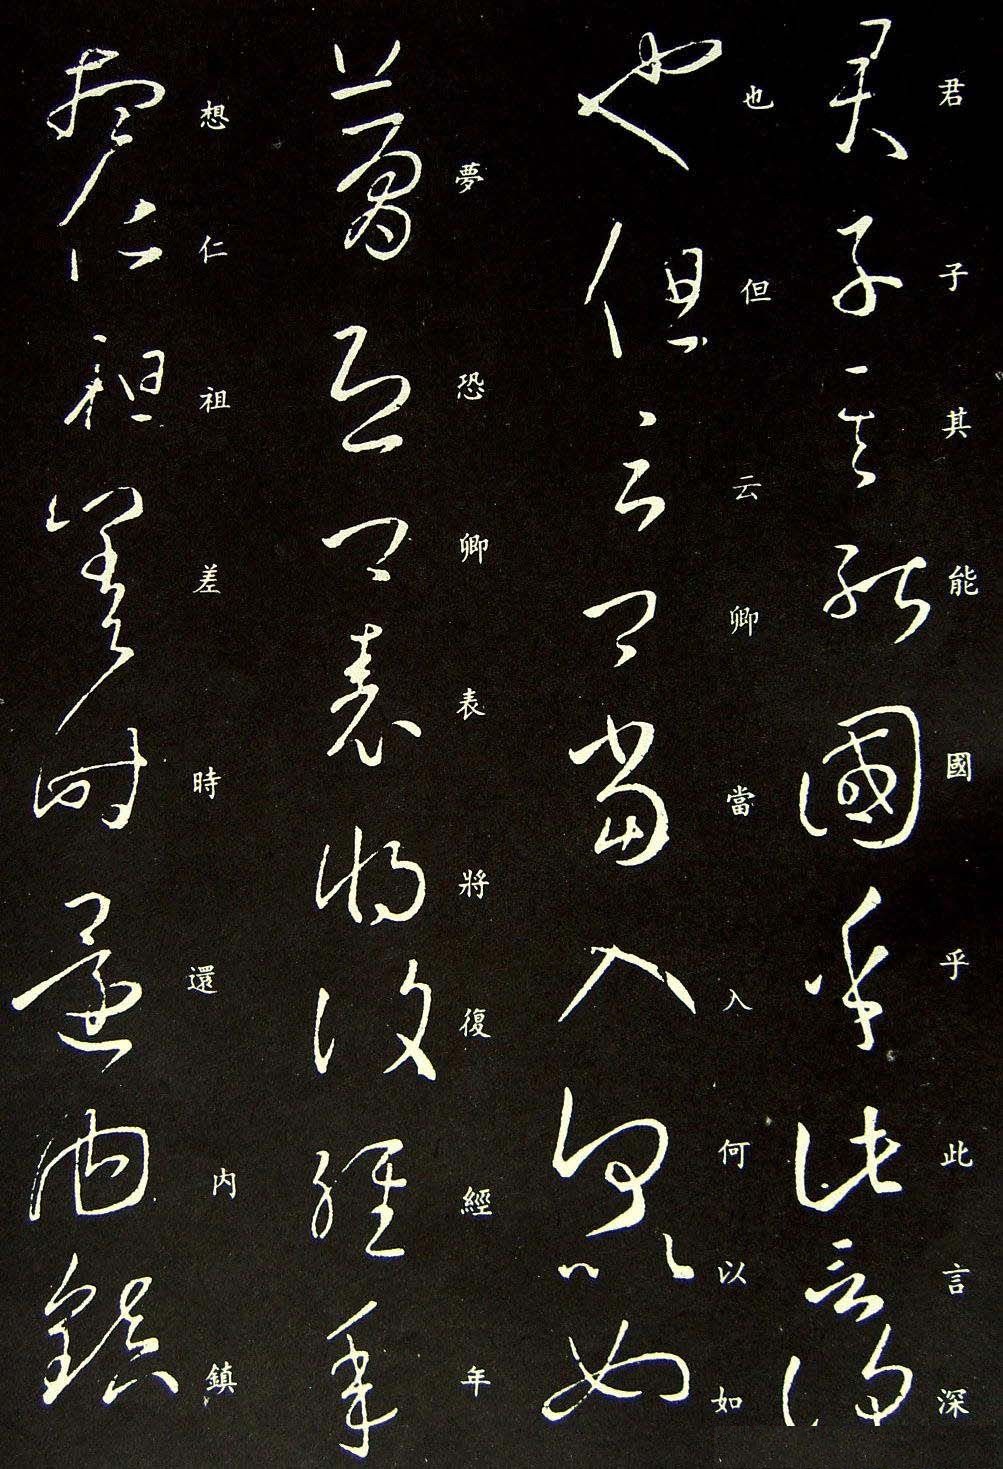 君子其能國乎此言深
也但云卿當入何以如
夢恐卿表將復經年
想仁祖差時還內鎮